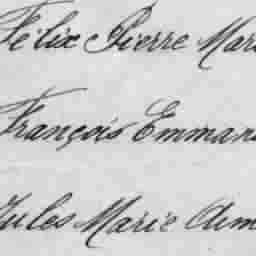 Félix Pierre Mari
François Emman
Jules Marie Aim